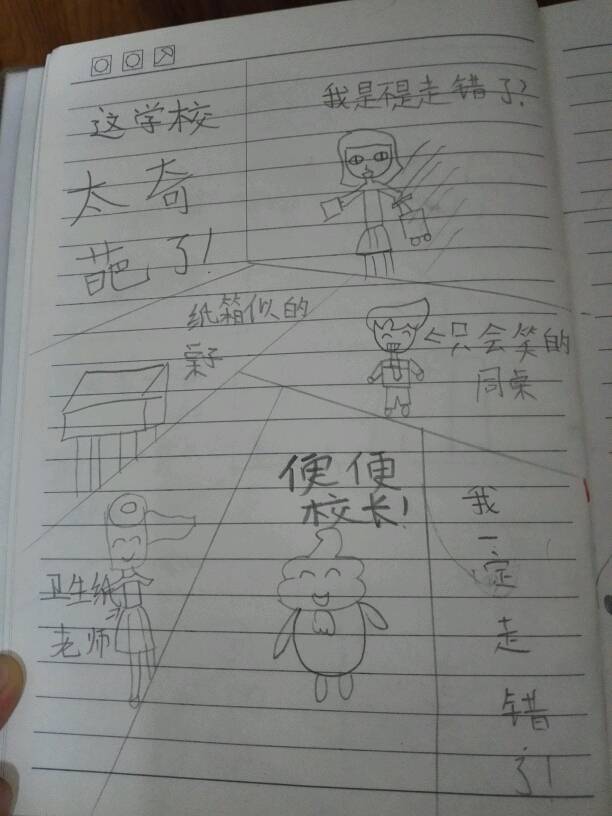 这学校
太奇
葩了!
我是不是走错了?
纸箱似的
桌子
只会笑的
同桌
卫生纸
老师
便便
校长!
我一定走错了!